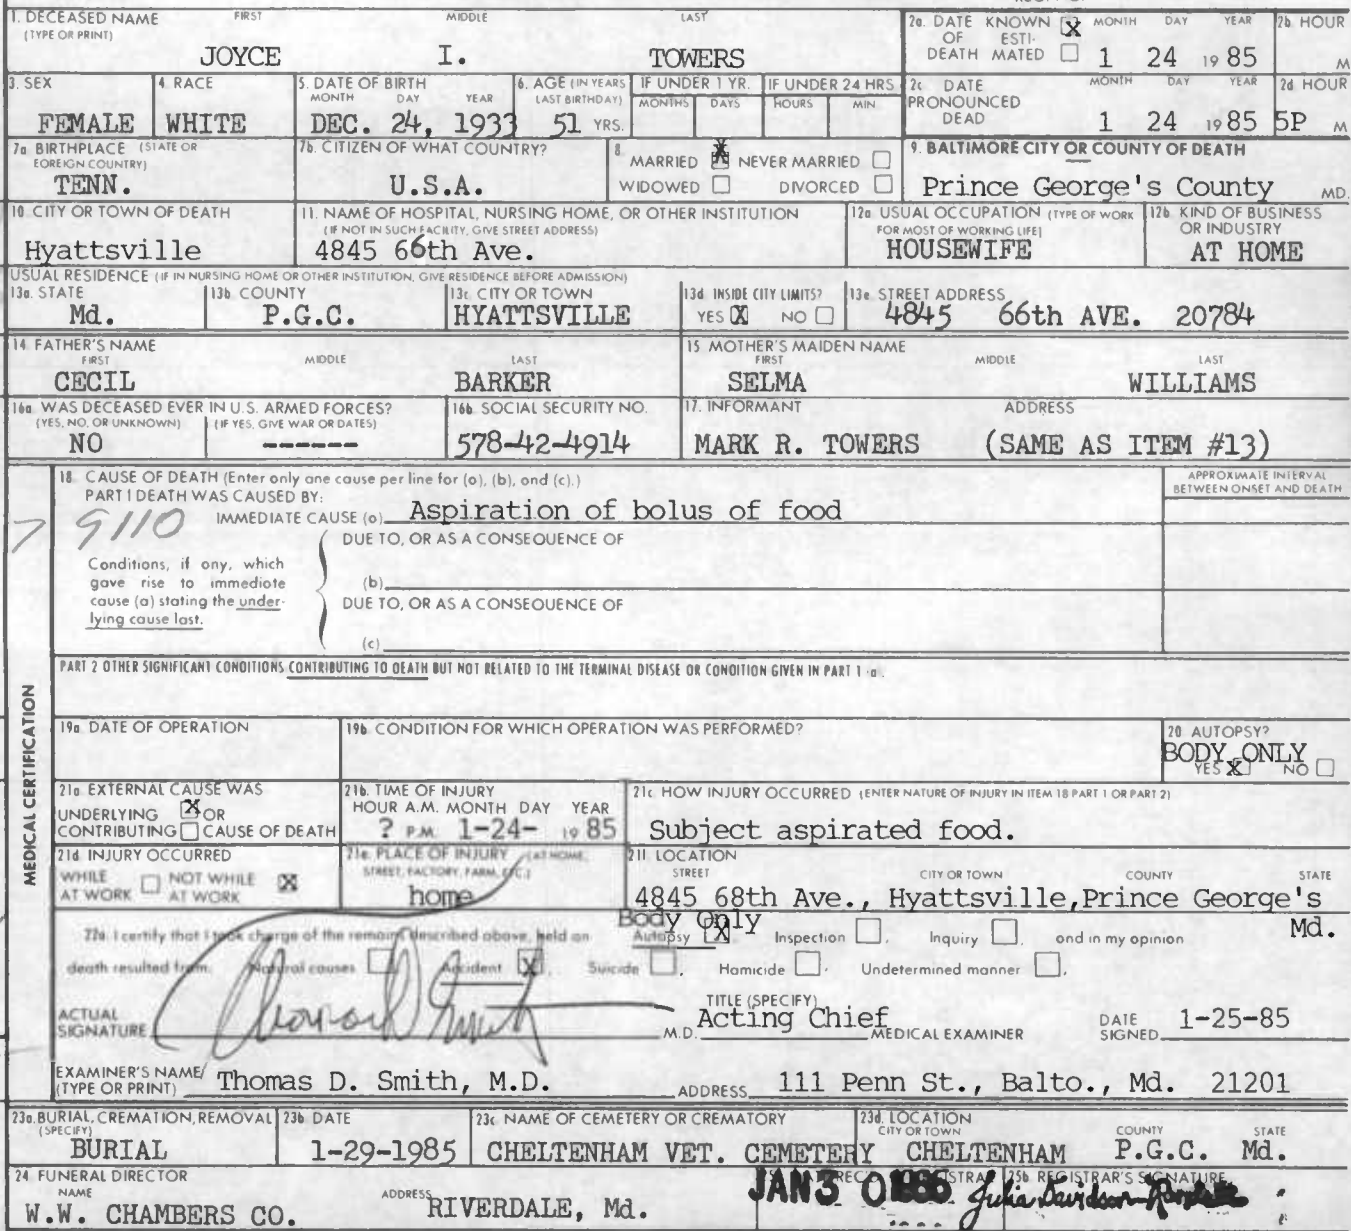 1. DECEASED NAME (TYPE OR PRINT) FIRST MIDDLE LAST
JOYCE I. TOWERS
2a. DATE OF DEATH KNOWN X ESTI-MATED MONTH DAY YEAR
1 24 1985
2b HOUR M
3. SEX
FEMALE
4. RACE
WHITE
5. DATE OF BIRTH MONTH DAY YEAR
DEC. 24, 1933
6. AGE (IN YEARS LAST BIRTHDAY)
51 YRS.
IF UNDER 1 YR. MONTHS DAYS
IF UNDER 24 HRS HOURS MIN.
2c DATE PRONOUNCED DEAD MONTH DAY YEAR
1 24 1985
2d HOUR
5P M
7a BIRTHPLACE (STATE OR FOREIGN COUNTRY)
TENN.
7b. CITIZEN OF WHAT COUNTRY?
U.S.A.
8 MARRIED X NEVER MARRIED
WIDOWED DIVORCED
9. BALTIMORE CITY OR COUNTY OF DEATH
Prince George's County MD.
10 CITY OR TOWN OF DEATH
Hyattsville
11. NAME OF HOSPITAL, NURSING HOME, OR OTHER INSTITUTION
(IF NOT IN SUCH FACILITY, GIVE STREET ADDRESS)
4845 66th Ave.
12a USUAL OCCUPATION (TYPE OF WORK FOR MOST OF WORKING LIFE)
HOUSEWIFE
12b KIND OF BUSINESS OR INDUSTRY
AT HOME
USUAL RESIDENCE (IF IN NURSING HOME OR OTHER INSTITUTION, GIVE RESIDENCE BEFORE ADMISSION)
13a. STATE
Md.
13b COUNTY
P.G.C.
13c CITY OR TOWN
HYATTSVILLE
13d INSIDE CITY LIMITS?
YES X NO
13e STREET ADDRESS
4845 66th AVE. 20784
14. FATHER'S NAME FIRST MIDDLE LAST
CECIL BARKER
15 MOTHER'S MAIDEN NAME FIRST MIDDLE LAST
SELMA WILLIAMS
16a WAS DECEASED EVER IN U.S. ARMED FORCES?
(YES, NO, OR UNKNOWN) (IF YES, GIVE WAR OR DATES)
NO ------
16b. SOCIAL SECURITY NO.
578-42-4914
17. INFORMANT ADDRESS
MARK R. TOWERS (SAME AS ITEM #13)
MEDICAL CERTIFICATION
18 CAUSE OF DEATH (Enter only one cause per line for (a), (b), and (c).)
PART I DEATH WAS CAUSED BY:
APPROXIMATE INTERVAL BETWEEN ONSET AND DEATH
9110
IMMEDIATE CAUSE (a) Aspiration of bolus of food
DUE TO, OR AS A CONSEQUENCE OF
Conditions, if any, which
gave rise to immediate
cause (a) stating the under-
lying cause last.
(b)
DUE TO, OR AS A CONSEQUENCE OF
(c)
PART 2 OTHER SIGNIFICANT CONDITIONS CONTRIBUTING TO DEATH BUT NOT RELATED TO THE TERMINAL DISEASE OR CONDITION GIVEN IN PART 1 a.
19a DATE OF OPERATION
19b CONDITION FOR WHICH OPERATION WAS PERFORMED?
20 AUTOPSY?
BODY ONLY
YES X NO
21a EXTERNAL CAUSE WAS
UNDERLYING X OR
CONTRIBUTING CAUSE OF DEATH
21b. TIME OF INJURY
HOUR A.M. MONTH DAY YEAR
? P.M. 1-24- 1985
21c HOW INJURY OCCURRED (ENTER NATURE OF INJURY IN ITEM 18 PART 1 OR PART 2)
Subject aspirated food.
21d INJURY OCCURRED
WHILE AT WORK NOT WHILE AT WORK X
21e. PLACE OF INJURY (AT HOME, STREET, FACTORY, FARM, ETC.)
home
21f. LOCATION STREET CITY OR TOWN COUNTY STATE
4845 68th Ave., Hyattsville, Prince George's
Md.
Body Only
22a. I certify that I took charge of the remains described above, held an Autopsy X Inspection , Inquiry , and in my opinion
death resulted from: Natural causes , Accident X, Suicide , Homicide , Undetermined manner .
ACTUAL SIGNATURE M.D.
TITLE (SPECIFY)
Acting Chief MEDICAL EXAMINER
DATE SIGNED 1-25-85
EXAMINER'S NAME (TYPE OR PRINT) Thomas D. Smith, M.D.
ADDRESS 111 Penn St., Balto., Md. 21201
23a. BURIAL, CREMATION, REMOVAL (SPECIFY)
BURIAL
23b DATE
1-29-1985
23c NAME OF CEMETERY OR CREMATORY
CHELTENHAM VET. CEMETERY
23d. LOCATION CITY OR TOWN COUNTY STATE
CHELTENHAM P.G.C. Md.
24 FUNERAL DIRECTOR
NAME
W.W. CHAMBERS CO.
ADDRESS
RIVERDALE, Md.
JAN 3 0
25b REGISTRAR'S SIGNATURE
Julia Davidson